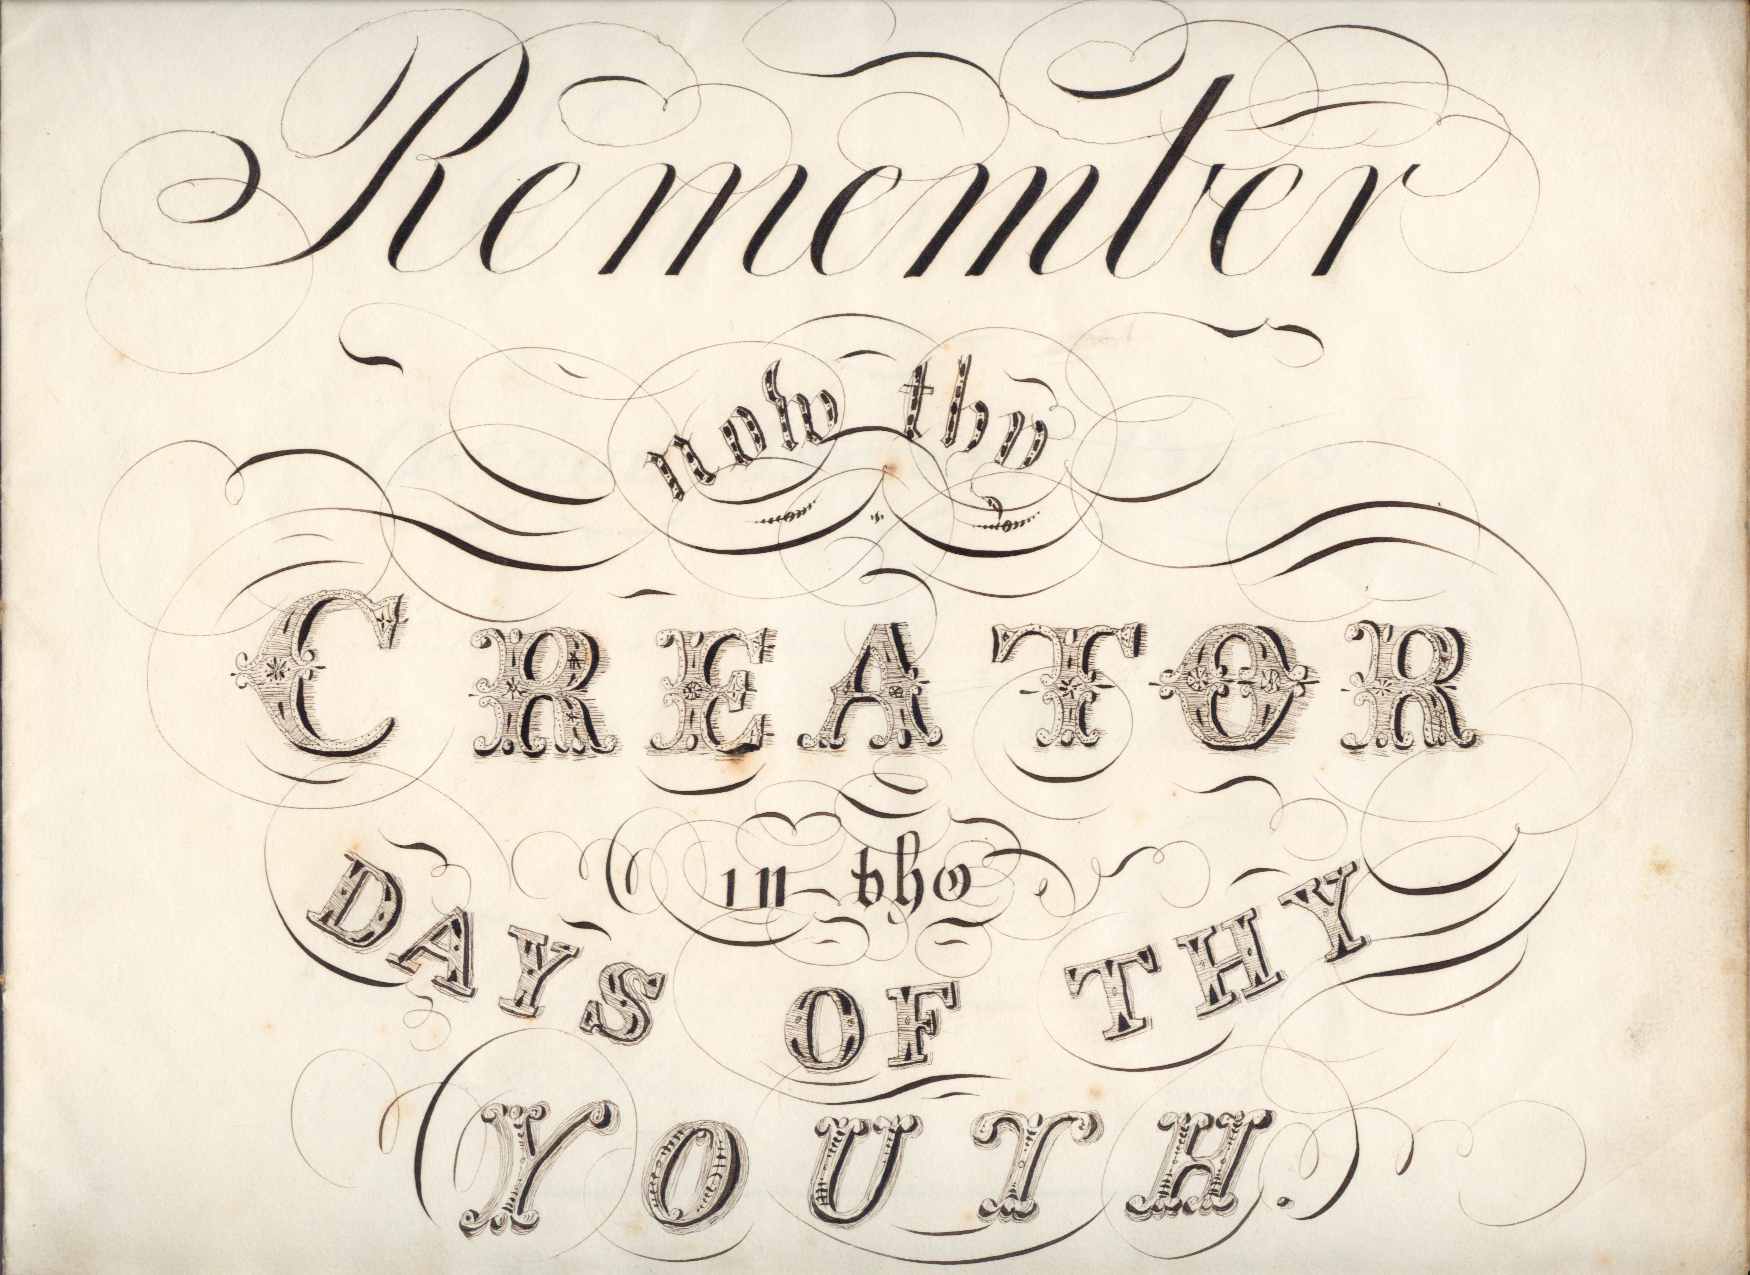 Remember
now thy
CREATOR
in the
DAYS OF THY
YOUTH.